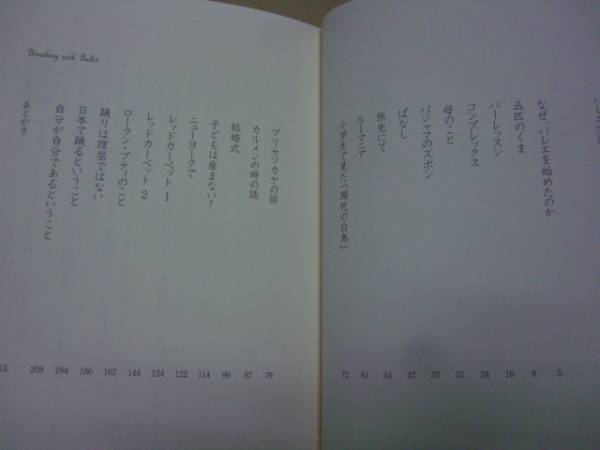 なぜ、バレエを始めたのか 5
五匹のくま 8
バーレッスン 16
コンプレックス 24
母のこと 31
パジャマのズボン 37
ぱなし 47
旅先にて 54
ルーマニア 61
小学生で見た『瀕死の白鳥』 72
Breathing with Ballet
プリセツカヤの話 79
カルメンの時の話 87
結婚式 99
子どもは産まない? 114
ニューヨークで 122
レッドカーペット1 134
レッドカーペット2 144
ローラン・プティのこと 167
踊りは理屈ではない 186
日本で踊るということ 194
自分が自分であるということ 209
あとがき 13